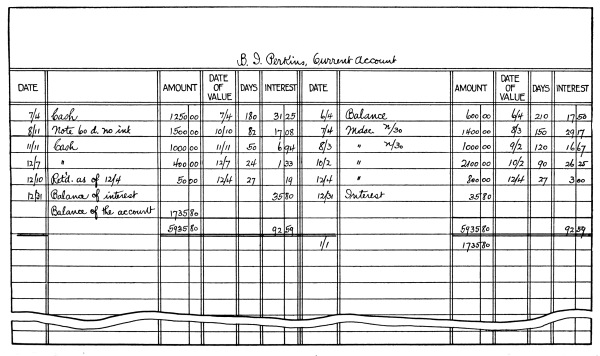 B. I. Perkins, Current Account
DATE AMOUNT DATE OF VALUE DAYS INTEREST DATE AMOUNT DATE OF VALUE DAYS INTEREST
7/4 Cash 1250 00 7/4 180 31 25 6/4 Balance 600 00 6/4 210 17 50
8/11 Note 60 d. no int 1500 00 10/10 82 17 08 7/4 Mdse n/30 1400 00 8/3 150 29 17
11/11 Cash 1000 00 11/11 50 6 94 8/3 " n/30 1000 00 9/2 120 16 67
12/7 " 400 00 12/7 24 1 33 10/2 " 2100 00 10/2 90 26 25
12/10 Ret'd. as of 12/4 50 00 12/4 27 19 12/4 " 800 00 12/4 27 3 00
12/31 Balance of interest 35 80 12/31 Interest 35 80
Balance of the account 1735 80
5935 80 92 59 5935 80 92 59
1/1 1735 80